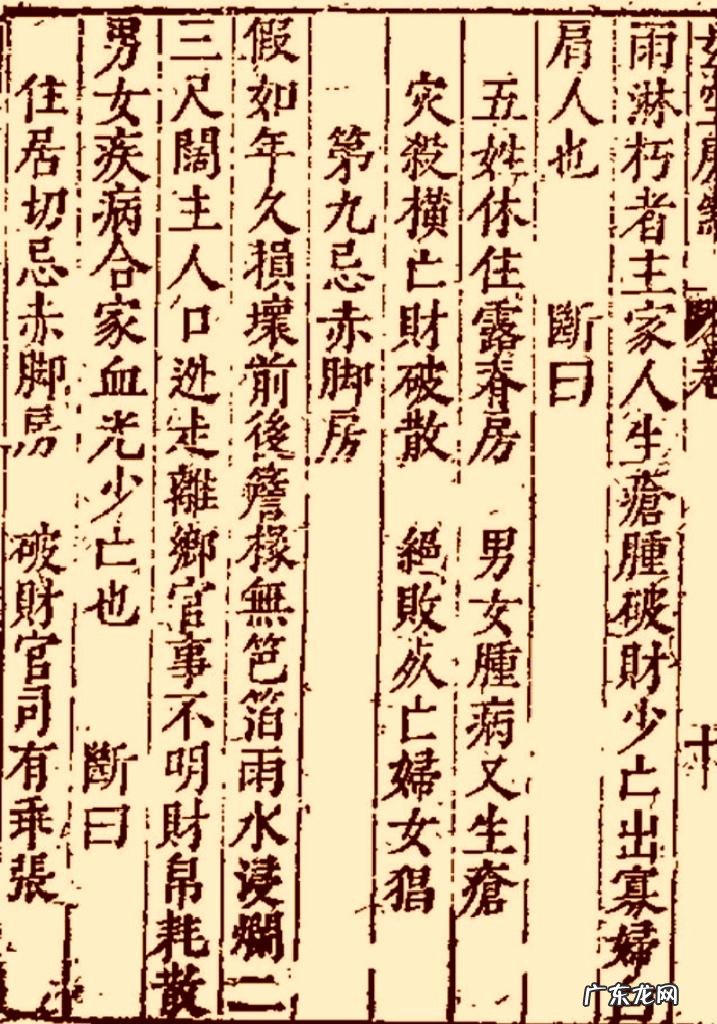 雨淋朽者主家人生瘡腫破財少亡出寡婦自
屑人也　斷曰
五姓休住露脊房　男女腫病又生瘡
灾殺橫亡財破散　絕敗死亡婦女猖
第九忌赤脚房
假如年久損壞前後簷椽無笆箔雨水浸爛二
三尺闊主人口迯走離鄉官事不明財帛耗散
男女疾病合家血光少亡也　斷曰
住居切忌赤脚房　破財官司有乖張
卷
十
广东龙网